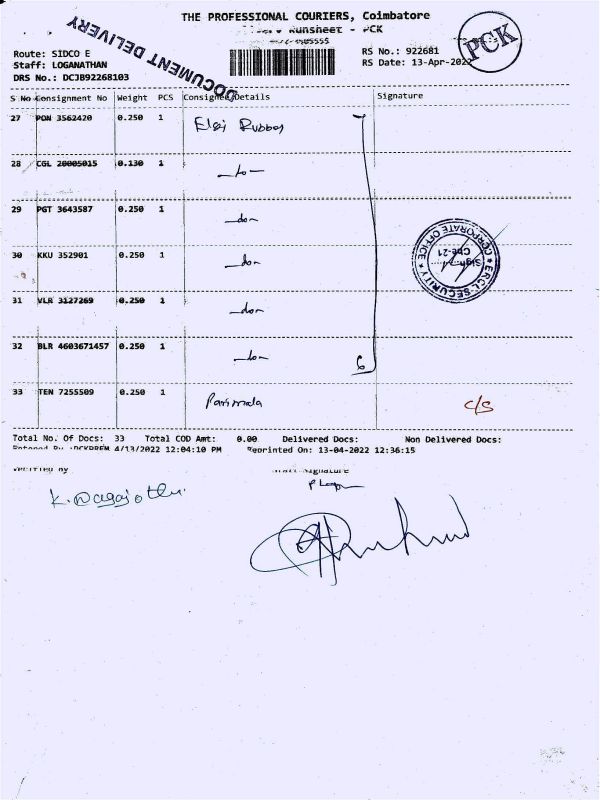 THE PROFESSIONAL COURIERS, Coimbatore
Runsheet - PCK
PCK
DOCUMENT DELIVERY
Route: SIDCO E
RS No.: 922681
Staff: LOGANATHAN
RS Date: 13-Apr-2022
DRS No.: DCJB92268103
S No Consignment No Weight PCS Consignee Details Signature
27 PON 3562420 0.250 1
28 CGL 20005015 0.130 1
29 PGT 3643587 0.250 1 -do-
30 KKU 352901 0.250 1 -do-
31 VLR 3127269 0.250 1 -do-
32 BLR 4603671457 0.250 1 -do-
6
33 TEN 7255509 0.250 1 Parimala C/S
CORPORATE OFFICE
Cbe-21
Sign
SECURITY
Total No. Of Docs: 33 Total COD Amt: 0.00 Delivered Docs: Non Delivered Docs:
4/13/2022 12:04:10 PM Reprinted On: 13-04-2022 12:36:15
Verified By Staff Signature
K. Nagajothi